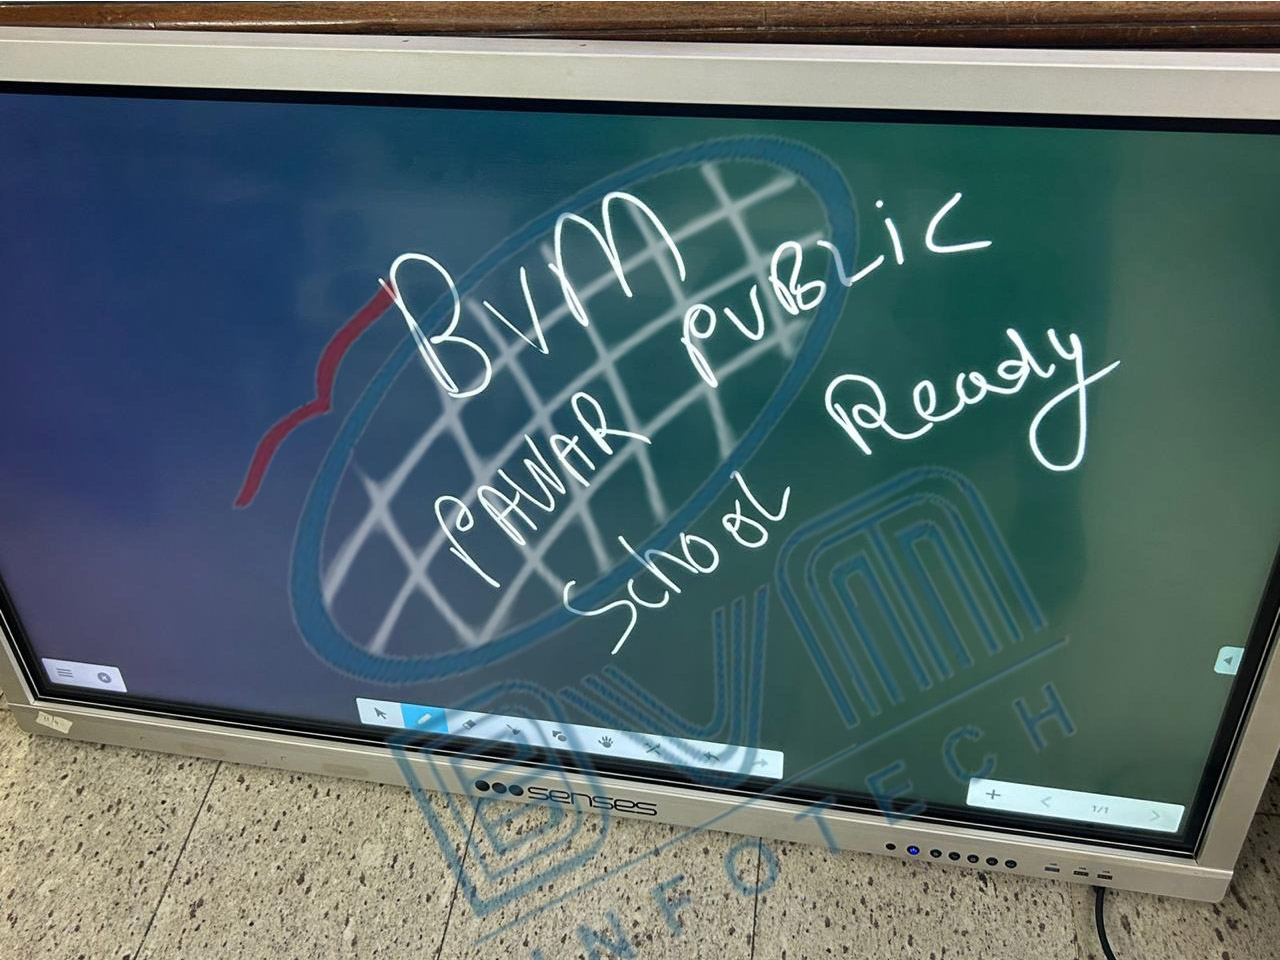 BVM
PAWAR PUBLIC
School Ready
senses
1/1
BVM
INFOTECH